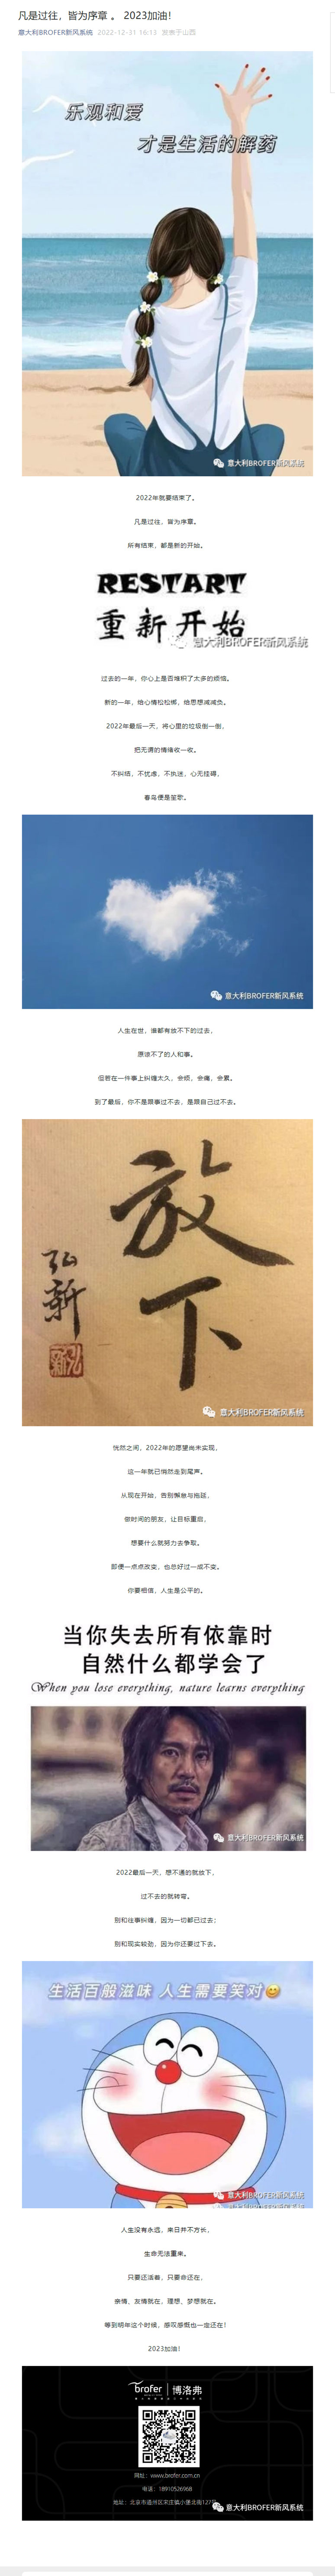 凡是过往，皆为序章 。 2023加油！
意大利BROFER新风系统 2022-12-31 16:12 发表于山西
乐观和爱
才是生活的解药
意大利BROFER新风系统
2022年就要结束了。
凡是过往，皆为序章。
所有结束，都是新的开始。
RESTART
重新开始
意大利BROFER新风系统
过去的一年，你心上是否堆积了太多的烦恼。
新的一年，给心情松松绑，给思想减减负。
2022年最后一天，将心里的垃圾倒一倒，
把无谓的情绪收一收。
不纠结、不忧虑、不执迷，心无挂碍，
春鸟便是笙歌。
意大利BROFER新风系统
人生在世，谁都有放不下的过去，
原谅不了的人和事。
但若在一件事上纠缠太久，会烦，会痛，会累。
到了最后，你不是跟事过不去，是跟自己过不去。
放下
弘新
意大利BROFER新风系统
恍然之间，2022年的愿望尚未实现，
这一年就已悄然走到尾声。
从现在开始，告别懈怠与拖延，
做时间的朋友，让目标重启，
想要什么就努力去争取。
即便一点点改变，也总好过一成不变。
你要相信，人生是公平的。
当你失去所有依靠时
自然什么都学会了
When you lose everything, nature learns everything
意大利BROFER新风系统
2022最后一天，想不通的就放下，
过不去的就转弯。
别和往事纠缠，因为一切都已过去；
别和现实较劲，因为你还要过下去。
生活百般滋味 人生需要笑对😊
意大利BROFER新风系统
意大利BROFER新风系统
人生没有永远，来日并不方长，
生命无法重来。
只要还活着，只要命还在，
亲情、友情就在，理想、梦想就在。
等到明年这个时候，感叹感慨也一定还在！
2023加油！
brofer 博洛弗
网址：www.brofer.com.cn
电话：18910526968
地址：北京市通州区宋庄镇小堡北街127号
意大利BROFER新风系统